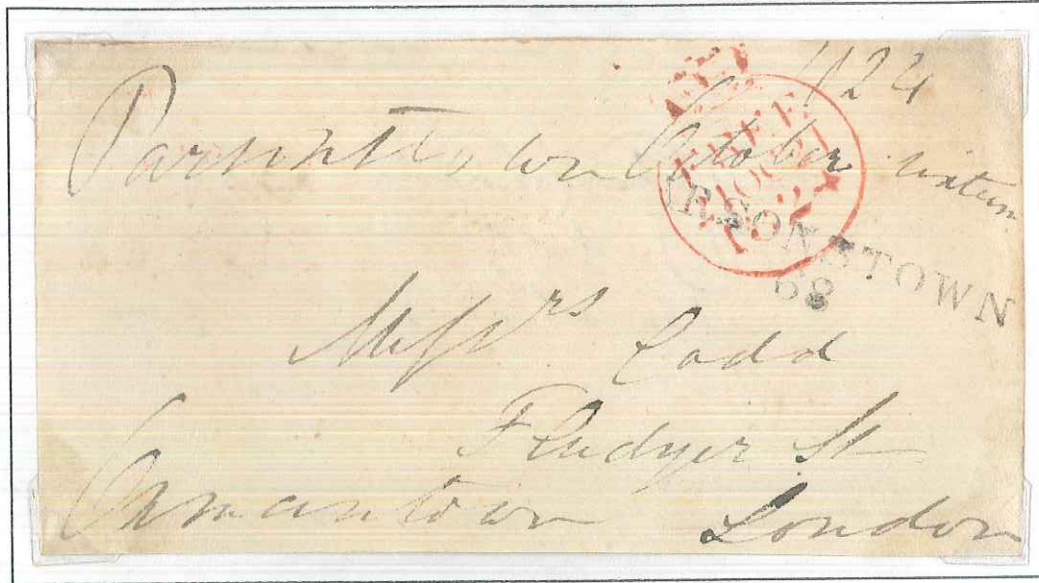 1824
Parsonstown October sixteen
FREE
OC 21
182
PARSONSTOWN
68
Messrs Cadd
Fludyer St
Oxmantown London